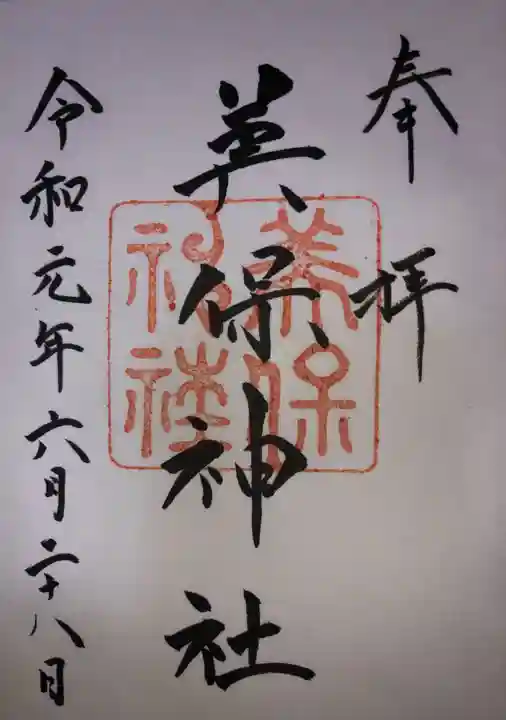 奉拝
美保神社
令和元年六月二十八日
美保
神社